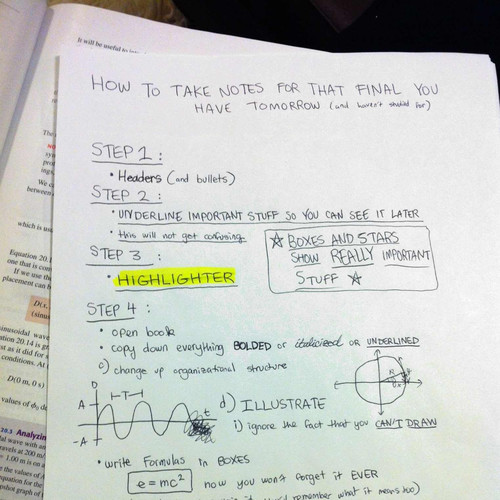 It will be useful to
HOW TO TAKE NOTES FOR THAT FINAL YOU
HAVE TOMORROW (and haven't studied for)
STEP 1:
• Headers (and bullets)
STEP 2:
• UNDERLINE IMPORTANT STUFF SO YOU CAN SEE IT LATER
• this will not get confusing
☆ BOXES AND STARS
SHOW REALLY IMPORTANT
STUFF ☆
STEP 3:
• HIGHLIGHTER
STEP 4:
• open book
• copy down everything BOLDED or italicized OR UNDERLINED
c) change up organizational structure
D
T
A
-A
t
R
d) ILLUSTRATE
i) ignore the fact that you CAN'T DRAW
• write Formulas in BOXES
e=mc² now you won't forget it EVER
remember what it means too)
We
between
which is
Equation 20.1
one that is
If we use the
placement can b
D(x,
(sinu
sinusoidal wave
ation 20.14 is gr
st as it did for s
conditions. At
D(0 m, 0 s)
values of
20.3 Analyzin
al wave with an
vels at 200 m/
= 1.00 m is on a
the values of
equation for the
apshot graph